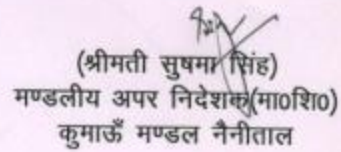 (श्रीमती सुषमा सिंह)
मण्डलीय अपर निदेशक(मा०शि०)
कुमाऊँ मण्डल नैनीताल